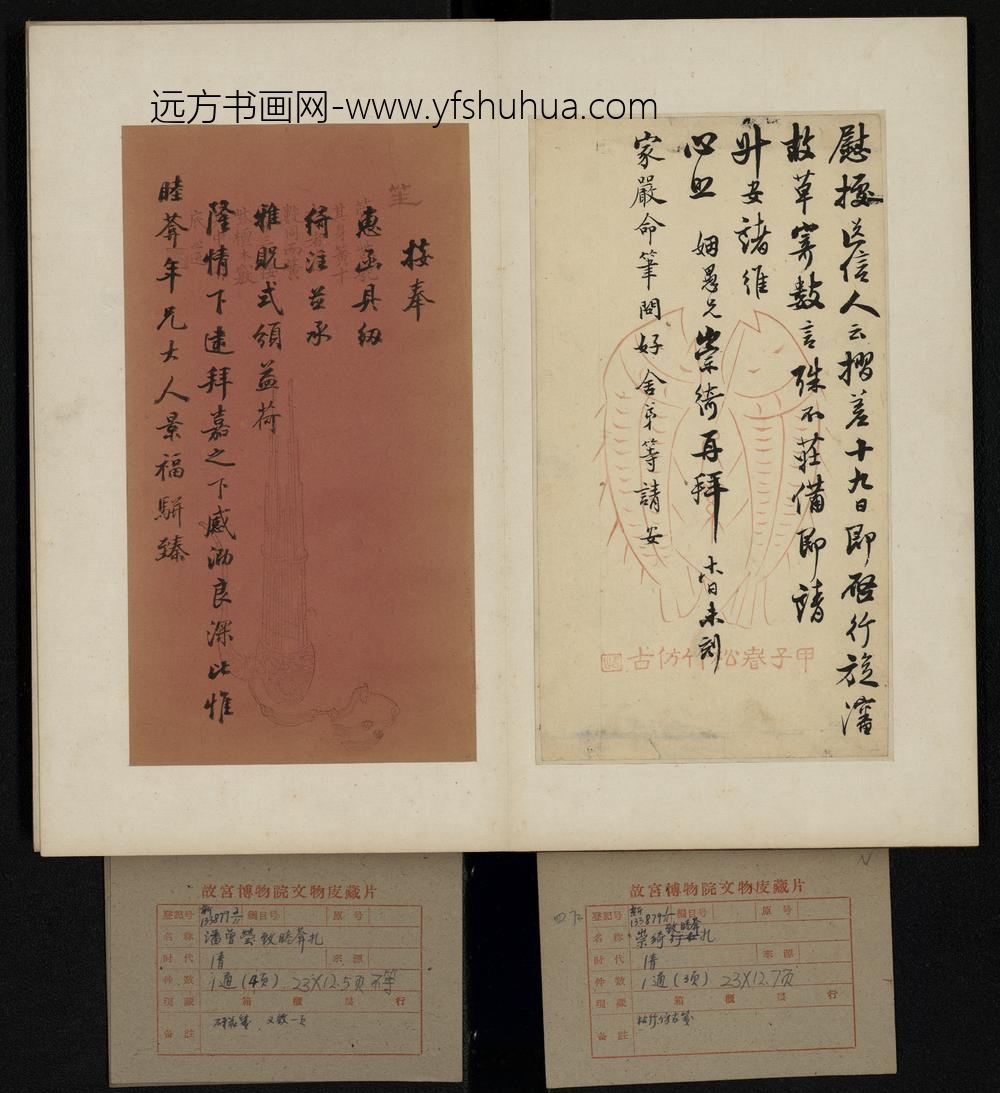 远方书画网-www.yfshuhua.com
慰擾送信人云摺差十九日即啓行旋瀋
故草寄數言殊不莊備即請
升安諸維
心照 姻愚兄崇綺再拜 十六日未刻
家嚴命筆問好 舍弟等請安
甲子春松竹仿古
接奉
惠函具紉
綺注並承
雅貺式頒益荷
隆情下逮拜嘉之下感泐良深比惟
睦莽年兄大人景福駢臻
笙
故宮博物院文物庋藏片
登記号 新133879 1/ 編目号 原号
名称 崇綺致睦莽札
时代 清 來源
件数 1通(3页) 23X12.7页
現藏 箱 櫃 层 行
备註 松竹仿古笺
故宮博物院文物庋藏片
登記号 新133879 編目号 原号
名称 潘曾瑩致睦莽札
时代 清 來源
件数 1通(4页) 23X12.5页不等
現藏 箱 櫃 层 行
备註